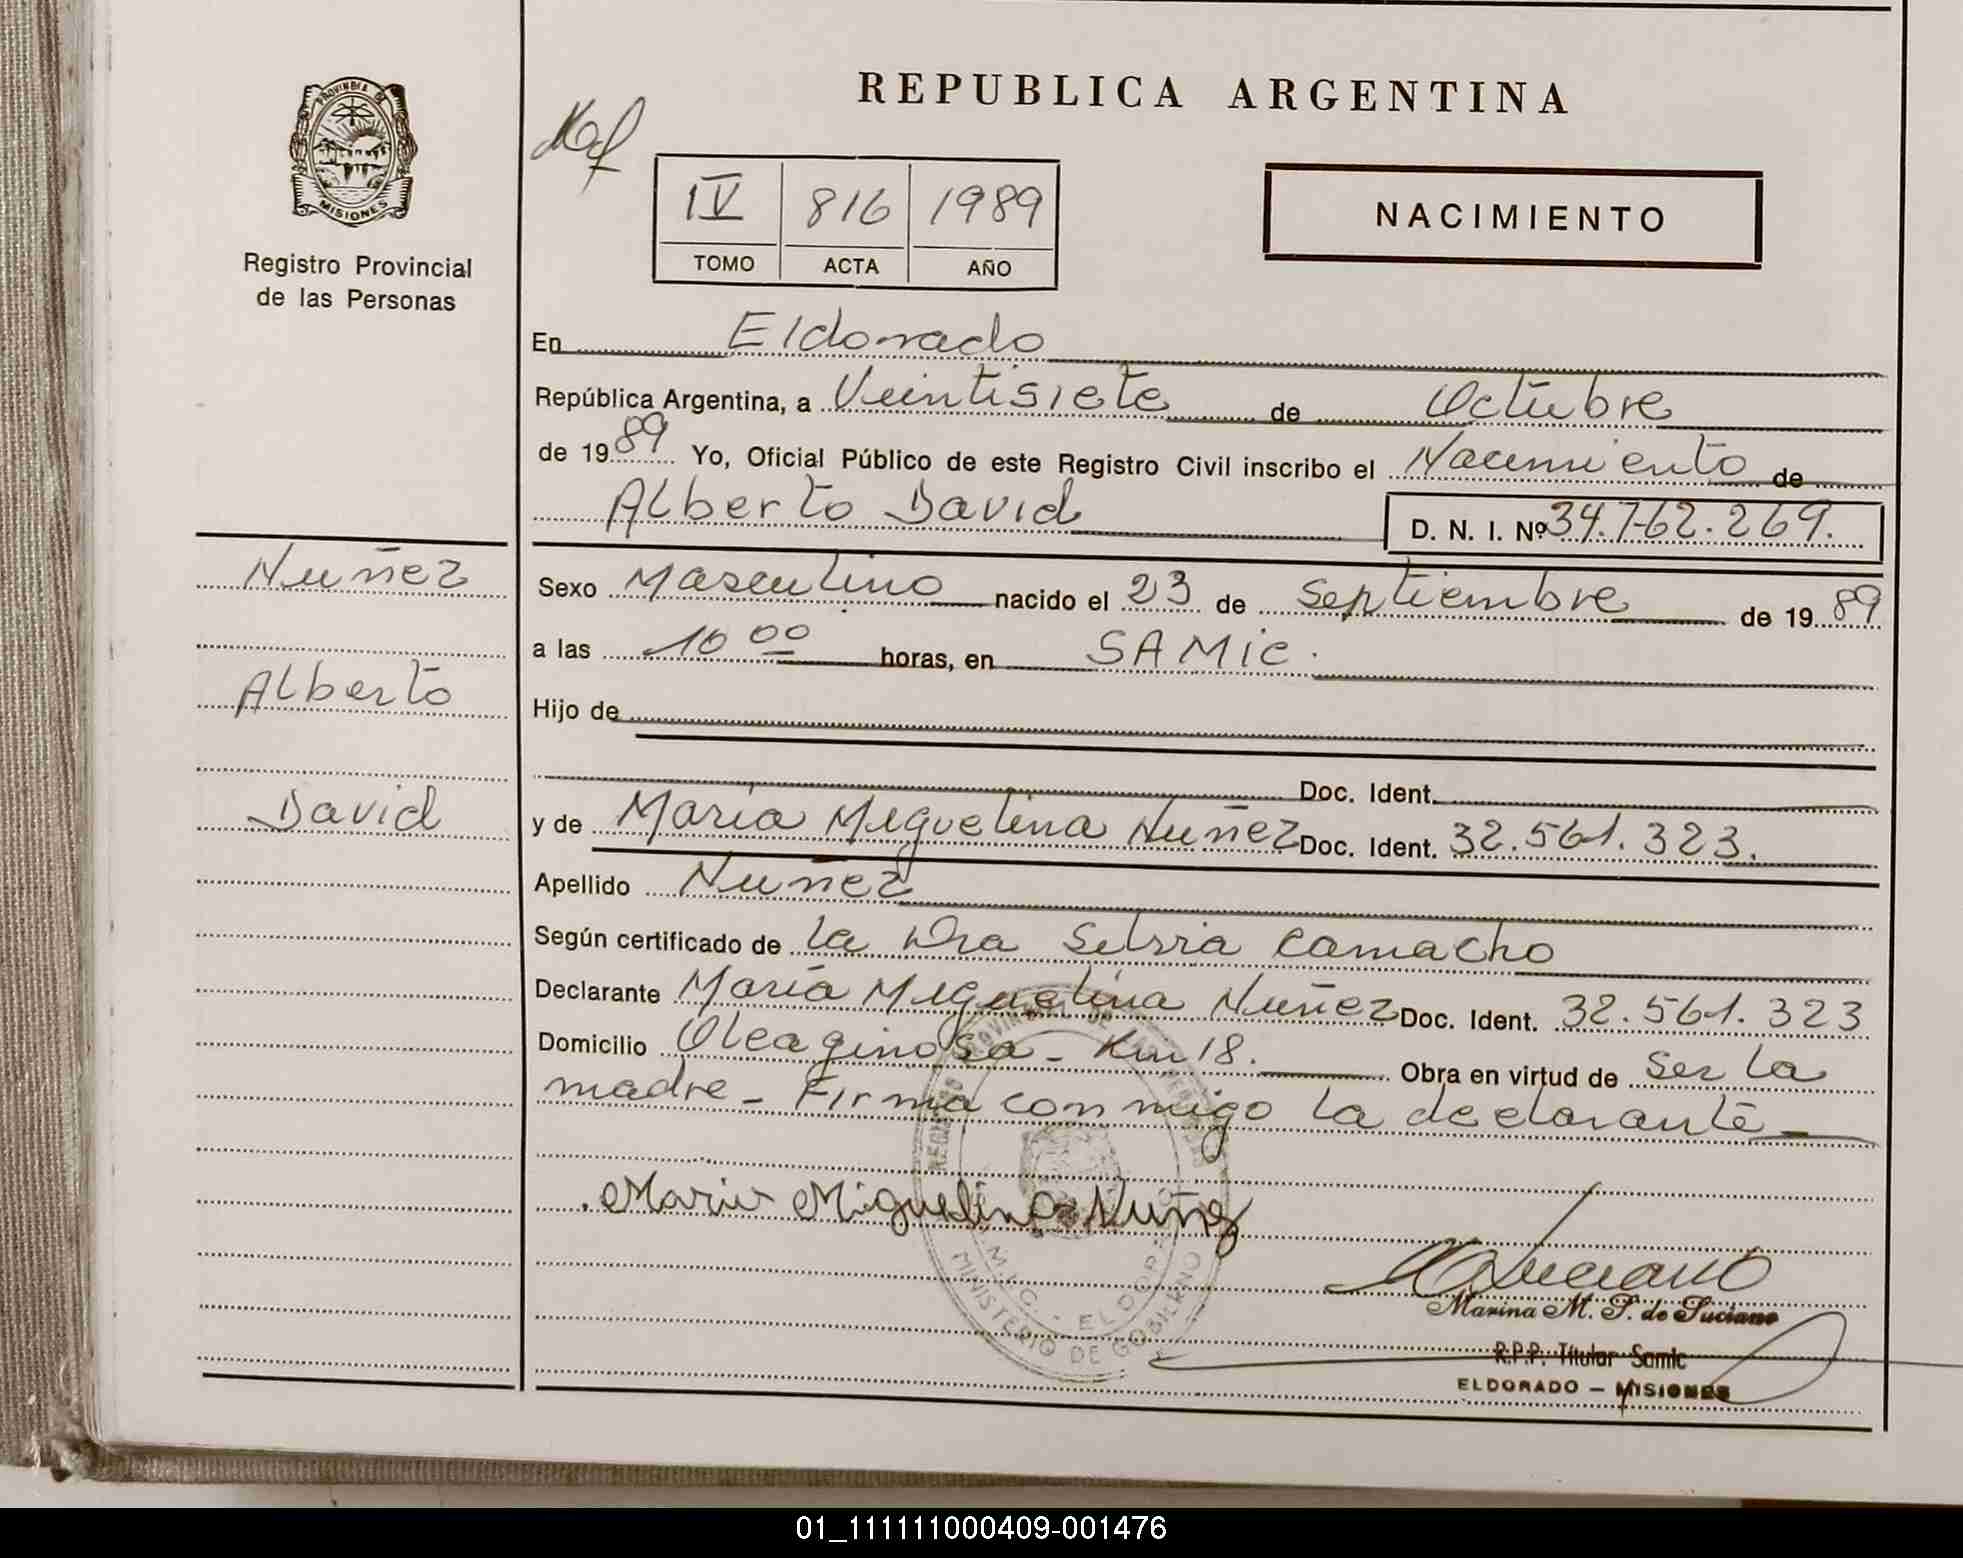 REPUBLICA ARGENTINA
PROVINCIA DE
MISIONES
Registro Provincial
de las Personas
IV 816 1989
TOMO ACTA AÑO
NACIMIENTO
En Eldorado
República Argentina, a Veintisiete de Octubre
de 1989 Yo, Oficial Público de este Registro Civil inscribo el Nacimiento de
Alberto David D. N. I. Nº 34.762.269.
Nuñez
Alberto
David
Sexo Masculino nacido el 23 de Septiembre de 1989
a las 10 00 horas, en SAMIC.
Hijo de
Doc. Ident.
y de María Miguelina Nuñez Doc. Ident. 32.561.323.
Apellido Nuñez
Según certificado de la Dra Silvia Camacho
Declarante María Miguelina Nuñez Doc. Ident. 32.561.323
Domicilio Oleaginosa - Km 18. Obra en virtud de ser la
madre - Firma conmigo la declarante
Maria Miguelina Nuñez
ELDORADO
MINISTERIO DE GOBIERNO
Luciano
Marina M. P. de Luciano
R.P.P. Titular Samic
ELDORADO - MISIONES
01_111111000409-001476